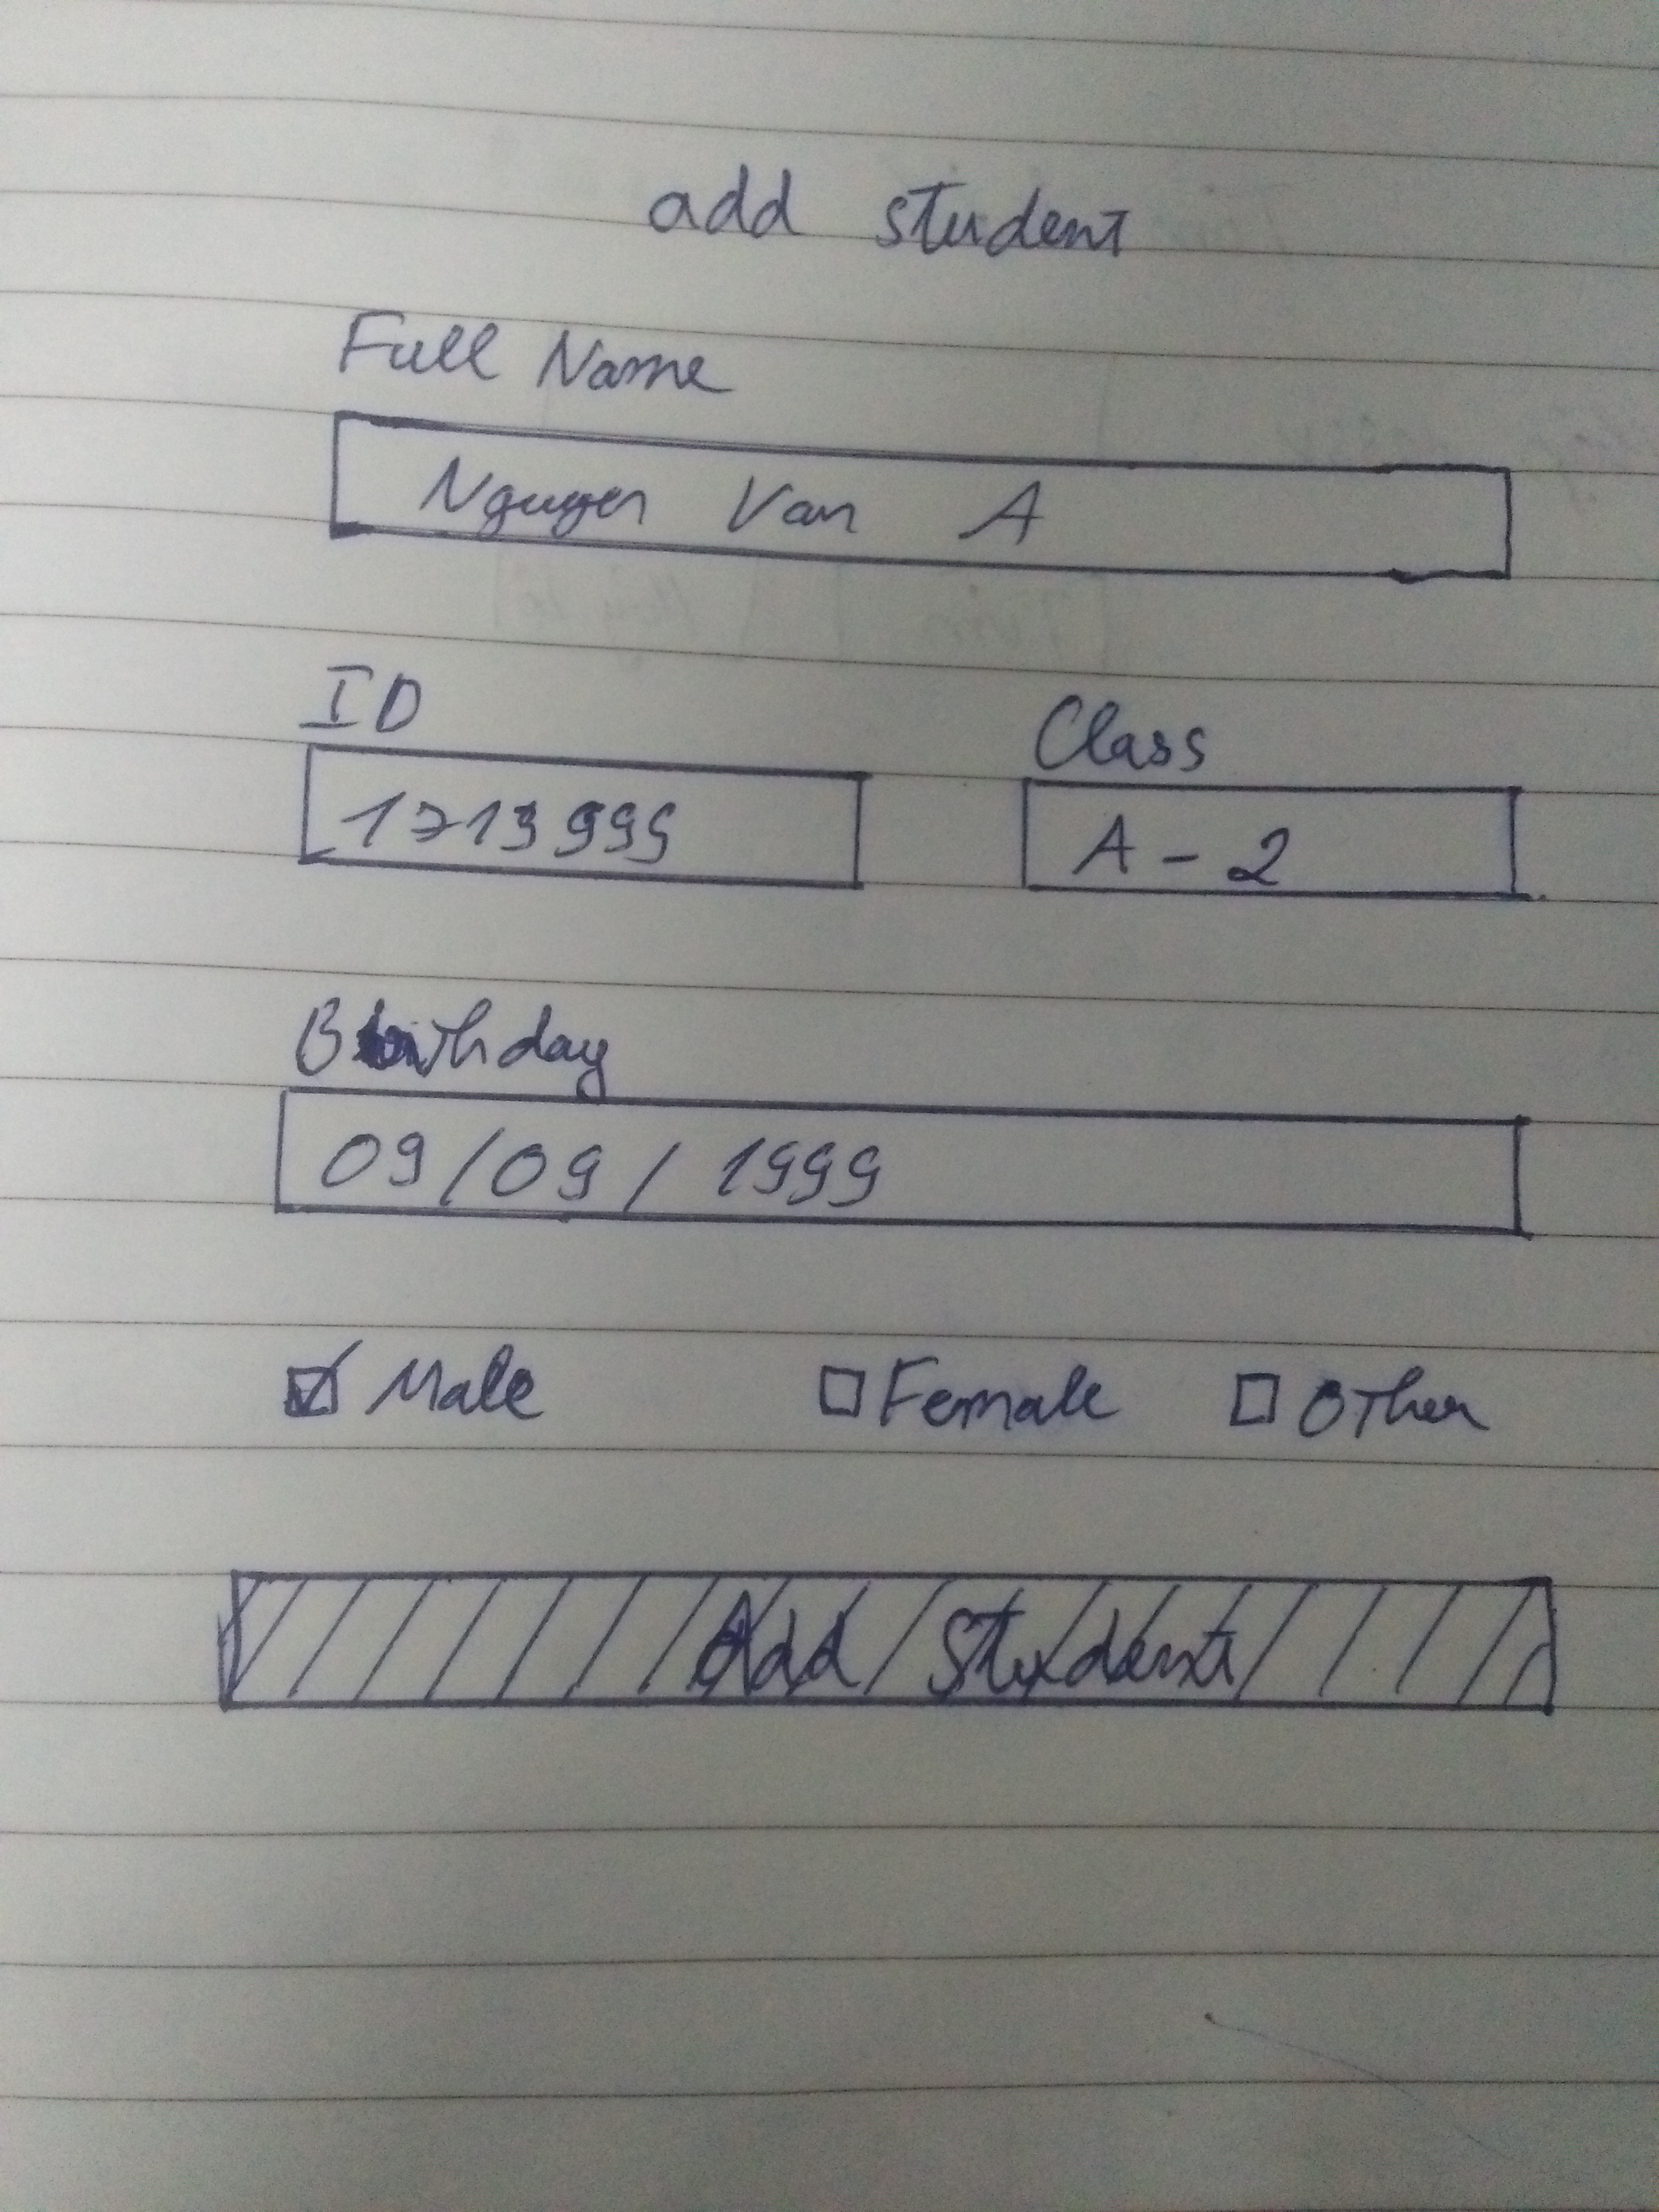 add student
Full Name
Nguyen Van A
ID
Class
1713999
A - 2
Birthday
09/09/1999
Male
Female
Other
Add Student